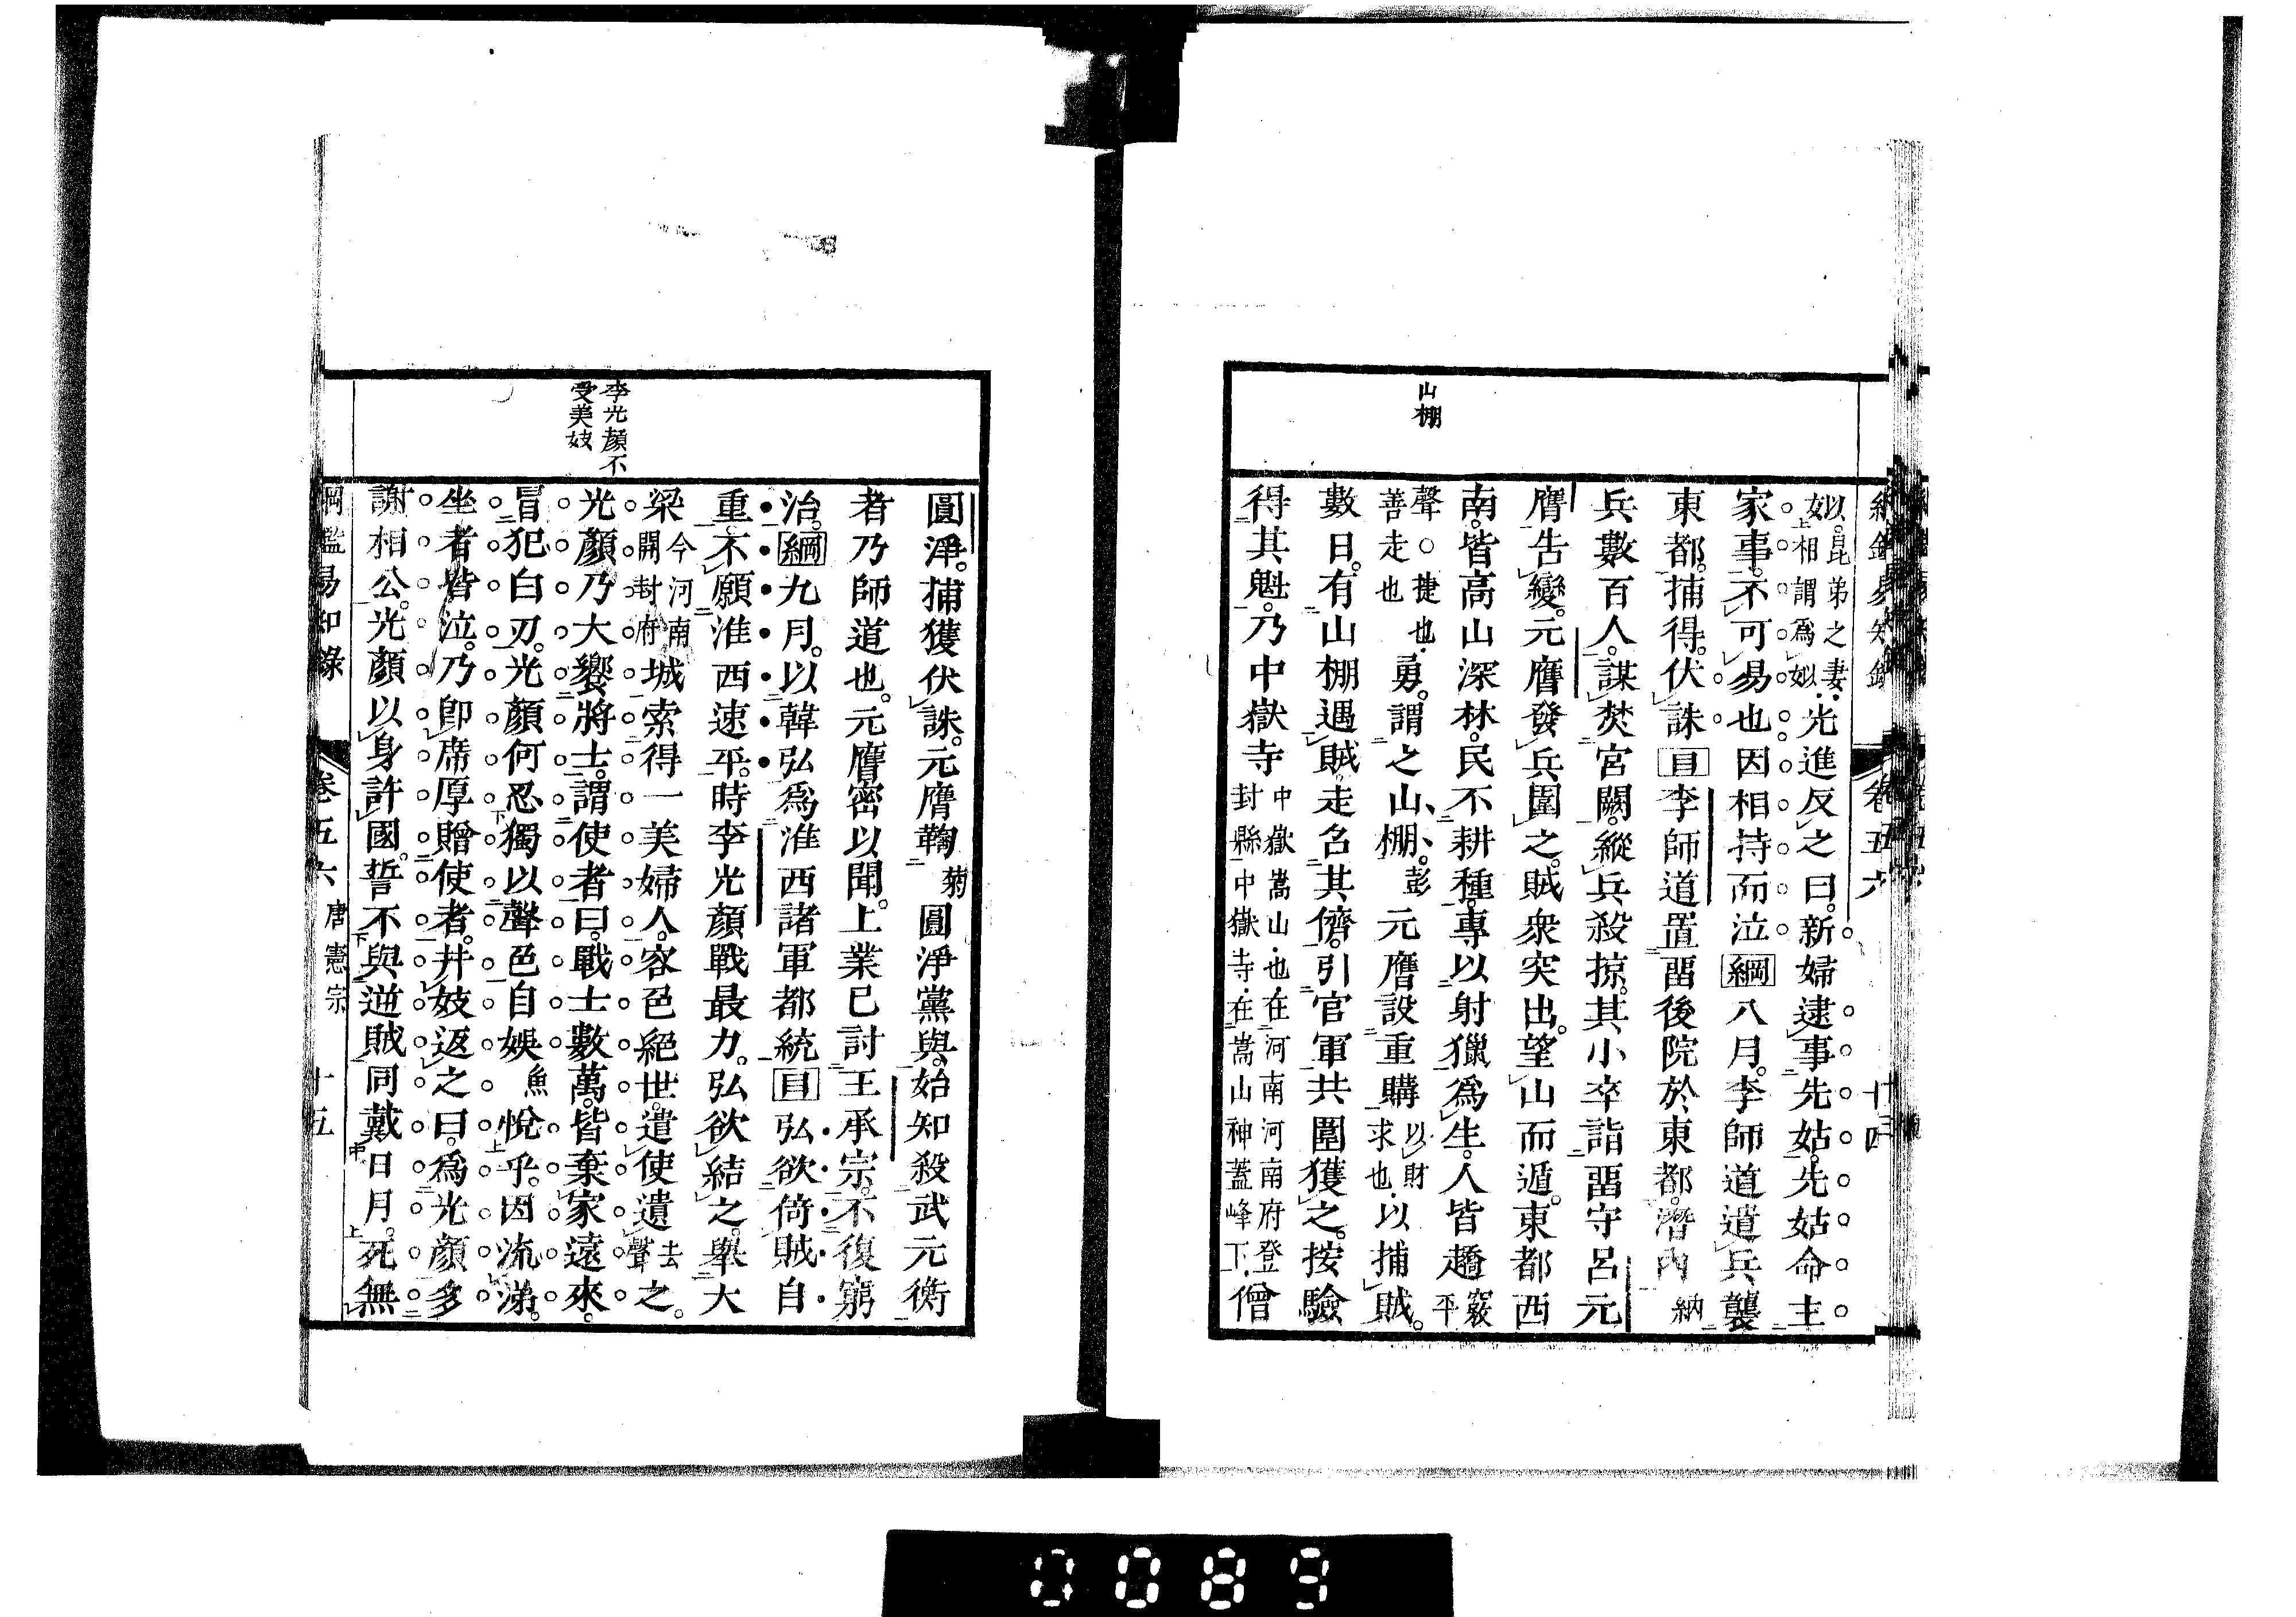 山棚
姒以。昆弟之妻
上相謂爲姒光進反之曰。新婦逮事先姑。先姑命主
家事。不可易也因相持而泣綱八月。李師道遣兵襲
東都。捕得。伏誅目李師道置畱後院於東都。潛內納
兵數百人。謀焚宮闕。縱兵殺掠。其小卒詣畱守呂元
膺告變。元膺發兵圍之。賊衆突出。望山而遁。東都西
南。皆高山深林。民不耕種。專以射獵爲生。人皆趫竅平
聲○捷也
善走也勇。謂之山棚。彭元膺設重購以財
求也以捕賊。
數日。有山棚遇賊。走召其儕。引官軍共圍獲之。按驗
得其魁。乃中嶽寺中嶽嵩山也在河南河南府登
封縣中嶽寺在嵩山神蓋峰下僧
卷五六
十四
李光顏不
受美妓
圓淨。捕獲伏誅。元膺鞫菊圓淨黨與。始知殺武元衡
者乃師道也。元膺密以聞。上業已討王承宗。不復窮
治。綱九月。以韓弘爲淮西諸軍都統目弘欲倚賊自
重。不願淮西速平。時李光顏戰最力。弘欲結之。舉大
梁今河南
開封府城索得一美婦人。容色絕世。遣使遺去
聲之。
光顏乃大饗將士。謂使者曰。戰士數萬。皆棄家遠來。
冒犯白刃。光顏何忍獨以聲色自娛魚悅乎。因流涕。
坐者皆泣。乃卽席厚贈使者。幷妓返之曰。爲光顏多
謝相公。光顏以身許國。誓不與逆賊同戴日月。死無
綱鑑易知錄 卷五六 唐憲宗 十五
0089